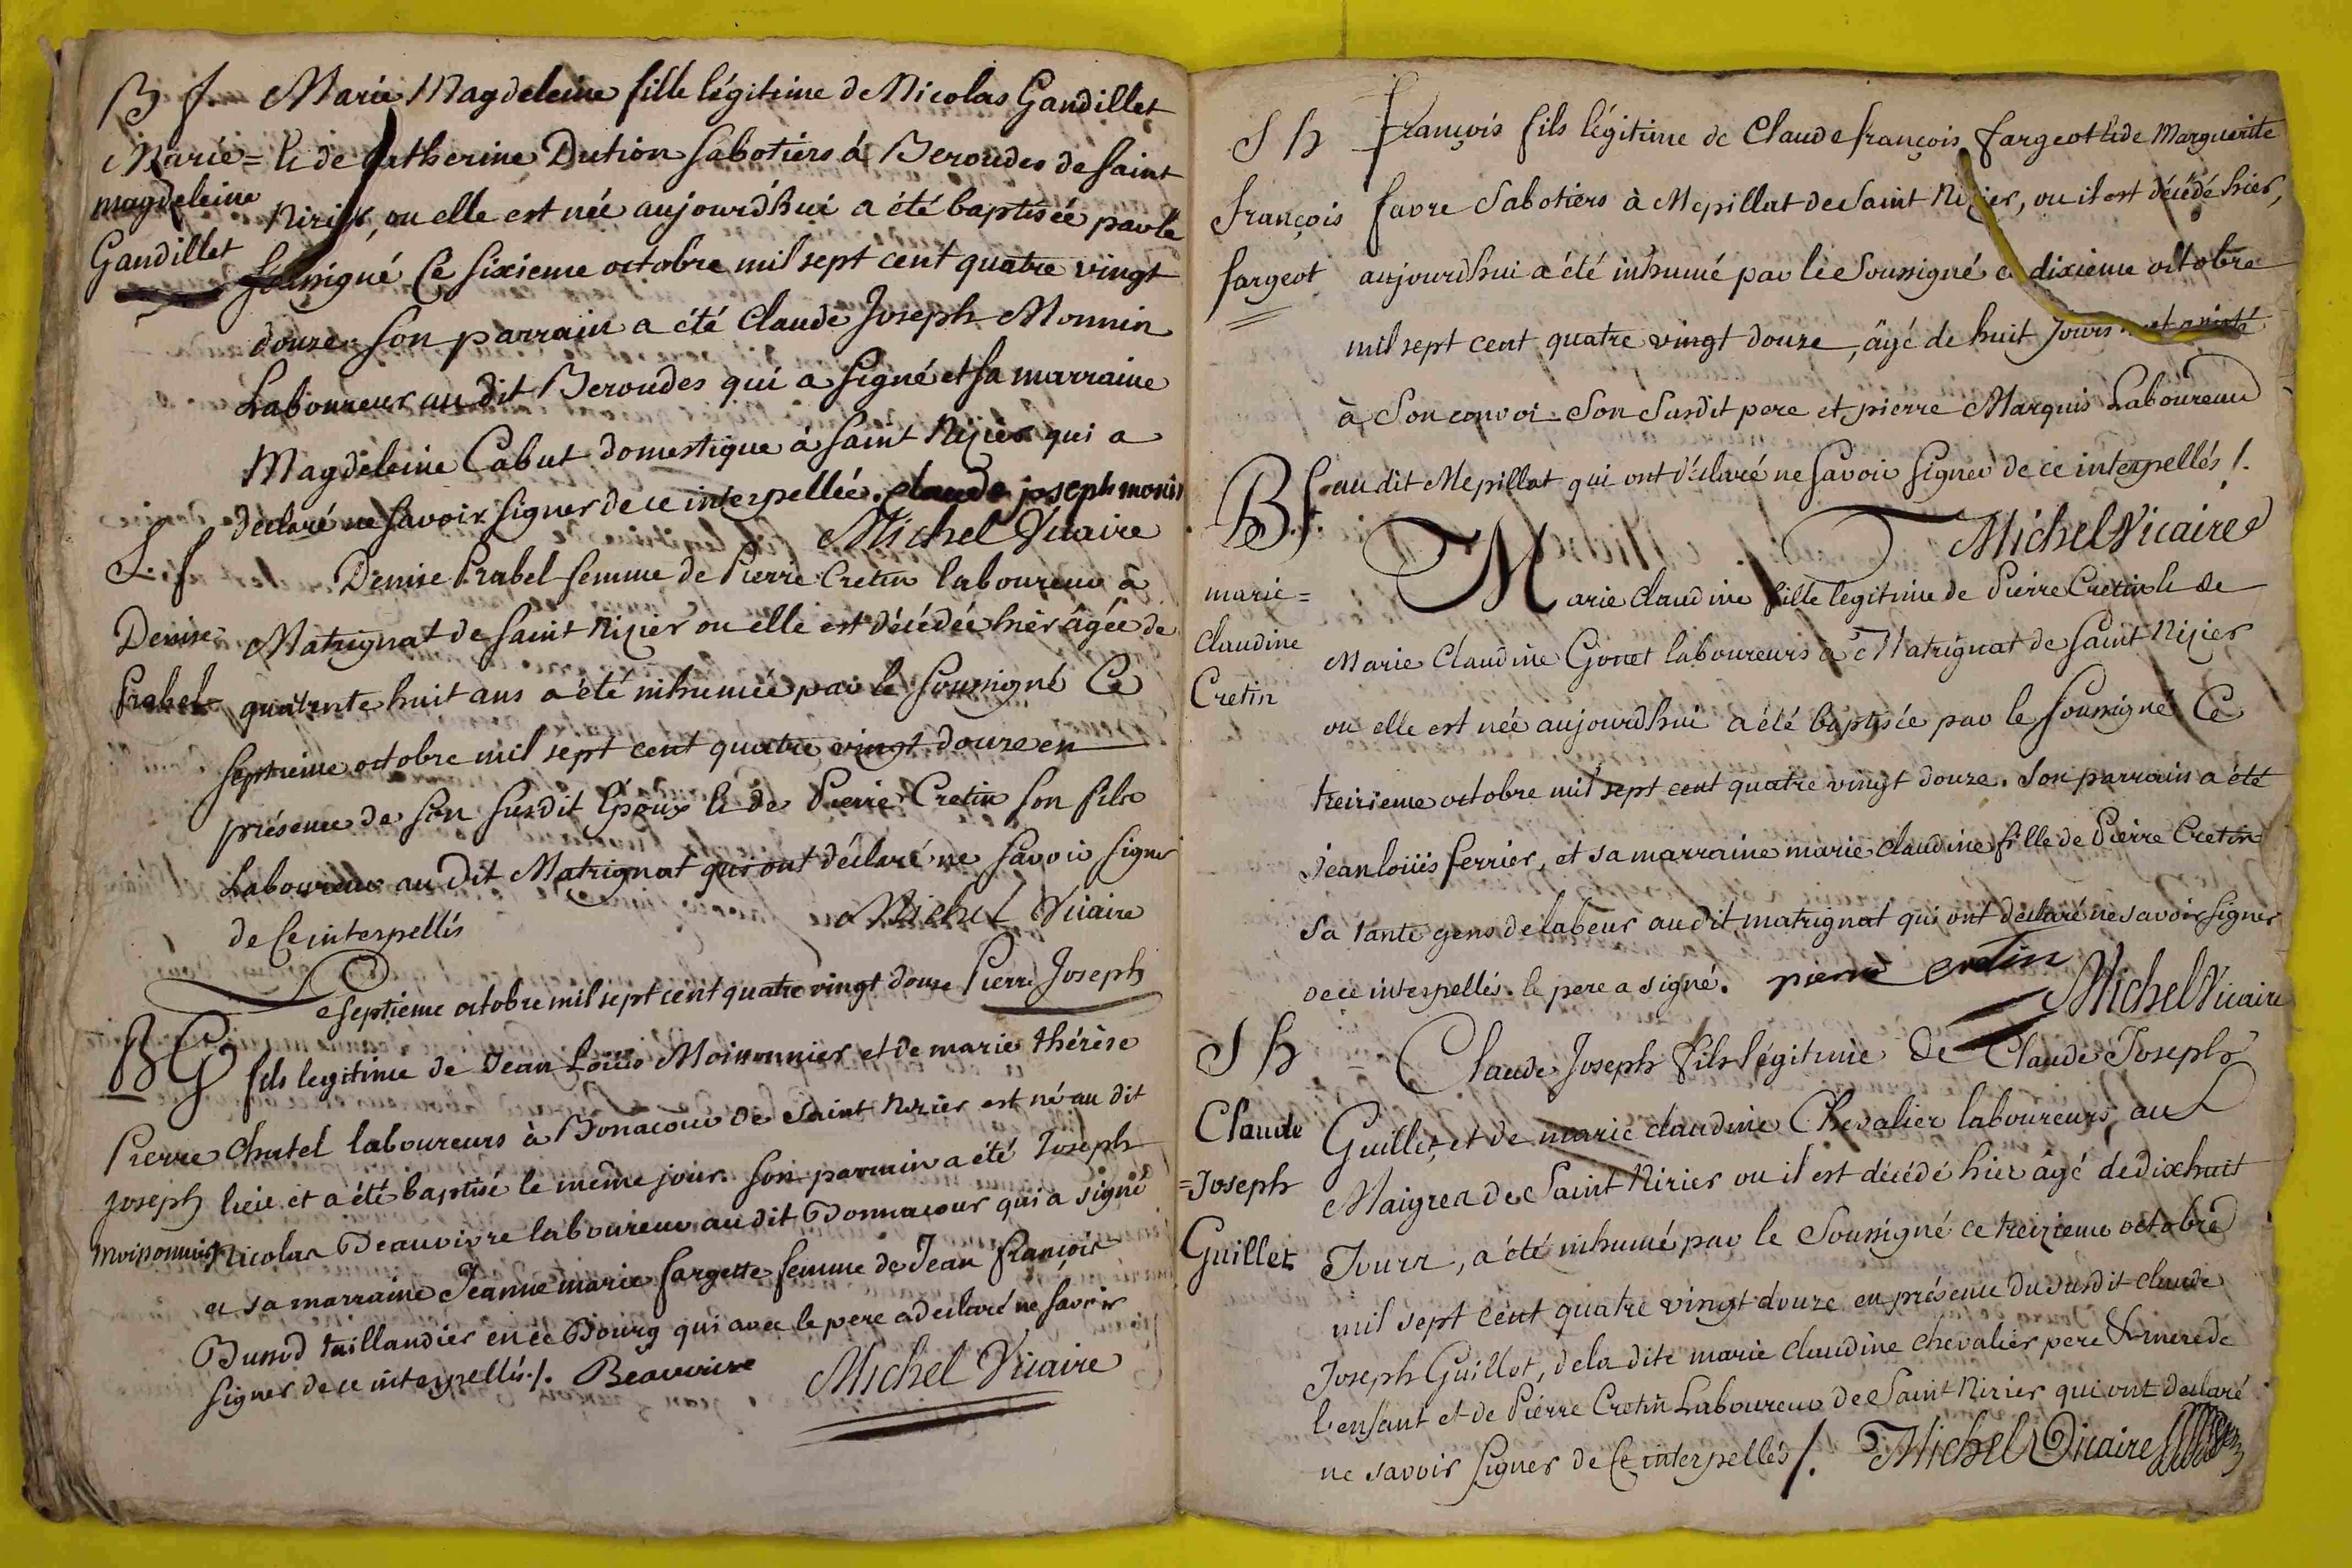 B f. Marie Magdeleine fille légitime de Nicolas Gandillet
Marie = & de Catherine Dution sabotiers à Beroudes de saint
magdeleine Nizier, ou elle est née aujourd'hui a été baptisée par le
Gandillet soussigné Ce sixieme octobre mil sept cent quatre vingt
douze. son parrain a été Claude Joseph Monnin
Laboureur au dit Beroudes qui a signé et sa marraine
Magdeleine Cabut domestique à saint Nizier qui a
declaré ne savoir signer de ce interpellée. claude joseph monin
Michel Vicaire
S. f Denise Prabel femme de Pierre Cretin laboureur à
Denise Matrignat de saint Nizier ou elle est décédée hier âgée de
Prabel quarente huit ans a été inhumée par le soussigné Ce
septieme octobre mil sept cent quatre vingt douze en
présence de son susdit Epoux & de Pierre Cretin son fils
Laboureur au dit Matrignat qui ont déclaré ne savoir signer
de Ce interpellés Michel Vicaire
Le septieme octobre mil sept cent quatre vingt douze Pierre Joseph
BG fils legitime de Jean Loüis Moissonnier et de marie thérèse
Pierre Chatel laboureurs à Bonacour de Saint Nizier est né au dit
Joseph lieu et a été baptisé le même jour. son parrain a été Joseph
Moissonnier Nicolas Beauvivre laboureur au dit Bonnacour qui a signé
et sa marraine Jeanne marie fargette femme de Jean françois
Bunod taillandier en ce Bourg qui avec le pere a declaré ne savoir
signer de ce interpellés ./. Beauvivre Michel Vicaire
S h françois fils légitime de Claude françois fargeot & de Marguerite
françois favre Sabotiers à Mepillat de Saint Nizier, ou il est décédé hier,
fargeot aujourdhui a été inhumé par le Soussigné ce dixieme octobre
mil sept cent quatre vingt douze, âgé de huit Jours
à Son convoi Son Susdit pere et pierre Marquis Laboureur
au dit Mepillat qui ont déclaré ne savoir signer de ce interpellés /.
Michel Vicaire
B f. Marie claudine fille legitime de Pierre Cretin & de
marie = Marie Claudine Gonet laboureurs à Matrignat de Saint Nizier
claudine ou elle est née aujourdhui a été baptisée par le soussigné Ce
Cretin treizieme octobre mil sept cent quatre vingt douze. son parrain a été
Jean loüis ferrier, et sa marraine marie claudine fille de Pierre Cretin
sa tante gens de labeur au dit matrignat qui ont declaré ne savoir signer
de ce interpellés. le pere a signé. pierre cretin Michel Vicaire
S h Claude Joseph fils légitime de Claude Joseph
Claude Guillet, et de marie claudine Chevalier laboureurs, au
=Joseph Maigrea de Saint Nizier ou il est décédé hier âgé de dix huit
Guillet Jours, a été inhumé par le Soussigné ce treizieme octobre
mil sept cent quatre vingt douze en présence du susdit claude
Joseph Guillot, de la dite marie claudine chevalier pere & mere de
l'enfant et de Pierre Cretin Laboureur de Saint Nizier qui ont declaré
ne savoir signer de Ce interpellés /. Michel Vicaire